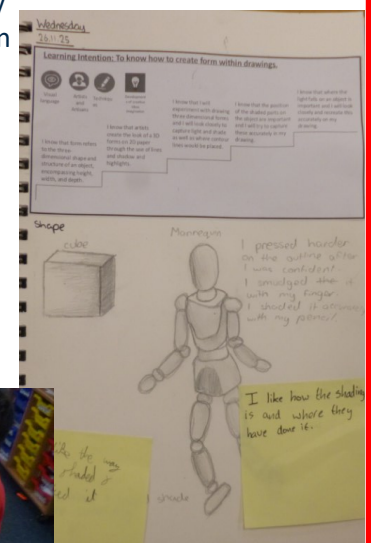 Wednesday
26.11.25
Learning Intention: To know how to create form within drawings.
Visual
language
Artists
and
I know that form refers
to the three
dimensional shape and
structure of an object,
encompassing height,
width, and depth.
I know that artists
create the look of a 3D
form on 2D paper
through the use of lines
and shadow and
highlights.
I know that I will
experiment with drawing
three dimensional forms
and I will look closely to
capture light and shade
as well as where contour
lines would be placed.
I know that the position
of the shaded parts on
the object are important
and I will try to capture
these accurately in my
drawing.
I know that where the
light falls on an object is
important and I will look
closely and recreate this
accurately on my
drawing.
Shape
cube
Mannequin
I pressed harder
on the outline after
I was confident.
I smudged the it
with my finger
I shaded it
with my pencil
I like how the shading
is and where they
have done it.
the
shaded
it
shade